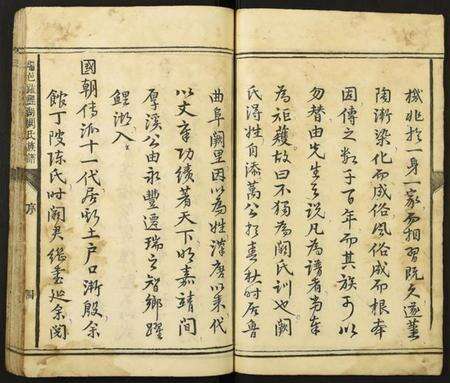 機兆於一身一家而相習既久遂薰
陶漸染化而成俗風俗成而根本
因傳之數千百年而其族可以
勿替由先生之說凡為譜者當奉
為矩矱故曰不獨為闕氏訓也闕
氏得姓自添萬公於春秋時居魯
曲阜闕里因以為姓漢唐以來代
以文章功績著天下明嘉靖間
厚溪公由永豐遷瑞之智鄉躍
鯉湖入
國朝傳派十一代居斯土戶口漸殷余
館丁陂陈氏時闕君 余閱
闕氏族譜
序